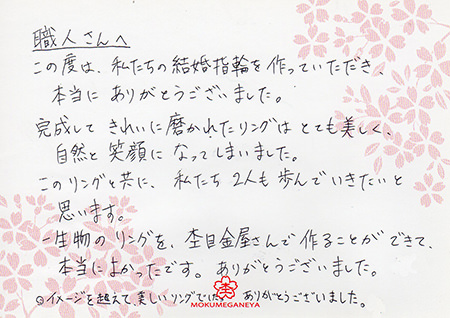 職人さんへ
この度は、私たちの結婚指輪を作っていただき、
本当に ありがとうございました。
完成して きれいに磨かれたリングは とても美しく、
自然と 笑顔に なってしまいました。
このリングと共に、私たち 2人も歩んでいきたいと
思います。
一生物の リングを、杢目金屋さんで 作ることができて、
本当によかったです。ありがとうございました。
◎イメージを超えて、美しいリングでした ありがとうございました。
MOKUMEGANEYA